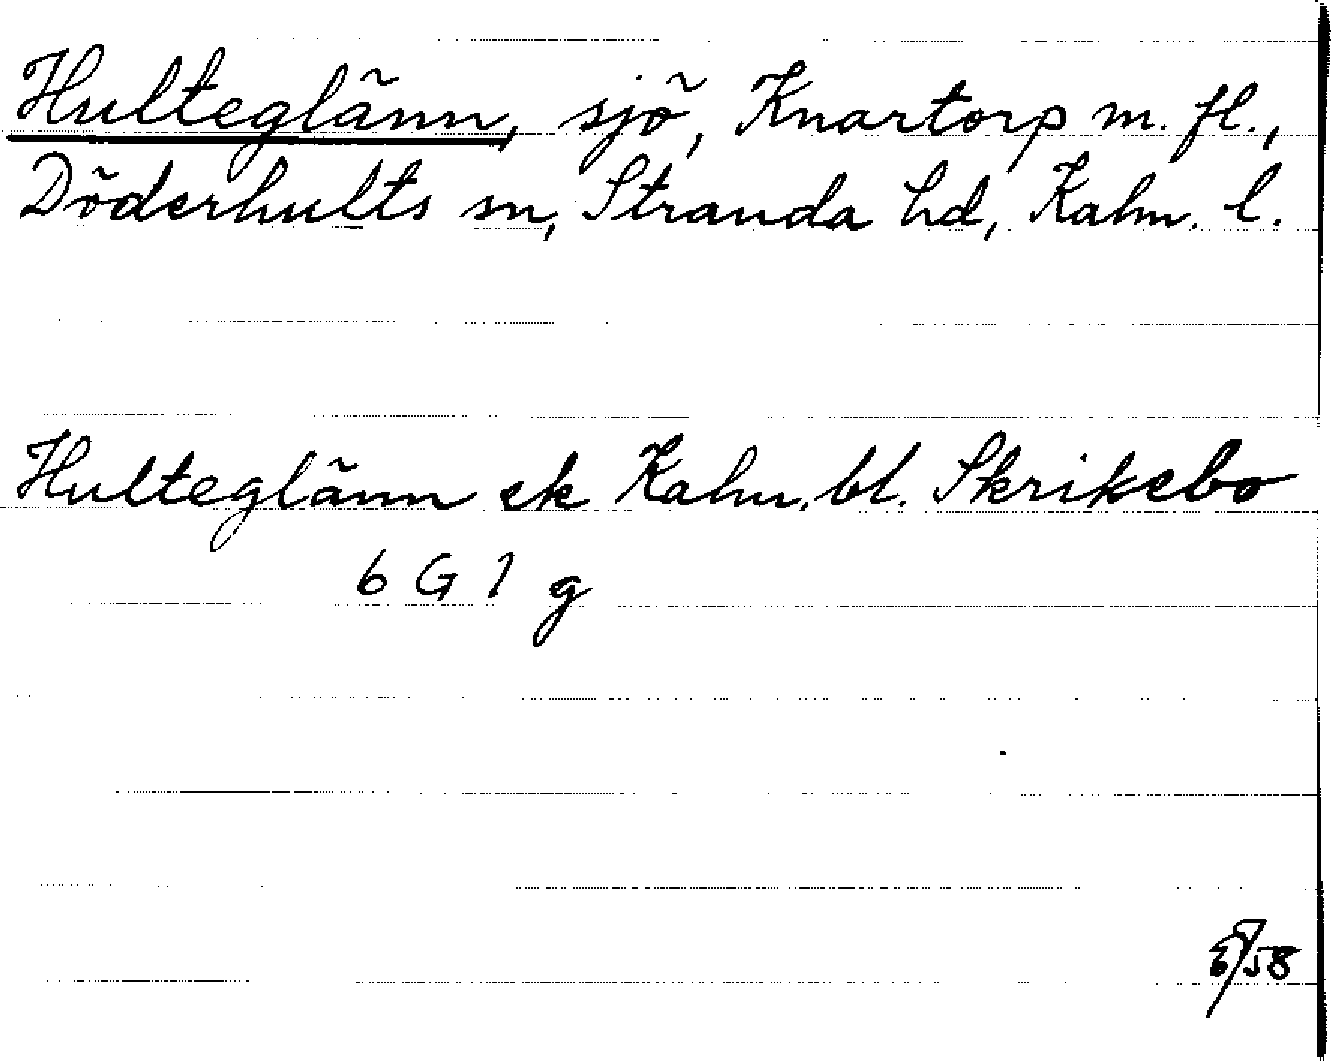 Hulteglänn, sjö, Knartorp m. fl.,
Döderhults sn, Stranda hd, Kalm. l.
Hulteglänn ek Kalm. bl. Skrikebo
6 G 1 g